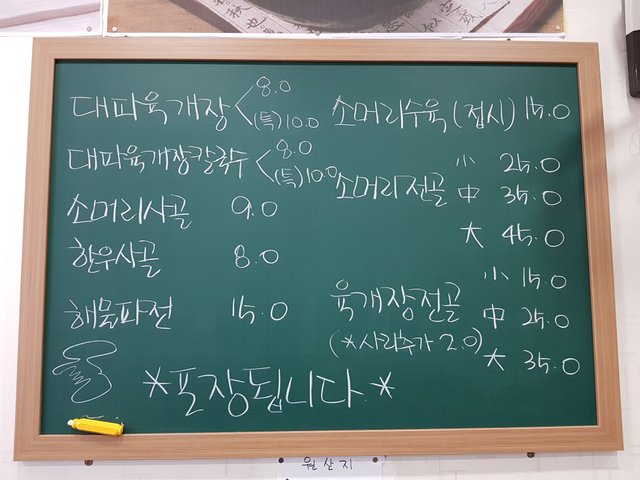 대파육개장 < 8.0
(특) 10.0
대파육개장칼국수 < 8.0
(특) 10.0
소머리사골 9.0
한우사골 8.0
해물파전 15.0
소머리수육 (접시) 15.0
소머리전골 小 25.0
中 35.0
大 45.0
육개장전골 小 15.0
中 25.0
(*사리추가 2.0) 大 35.0
*포장됩니다*
원산지